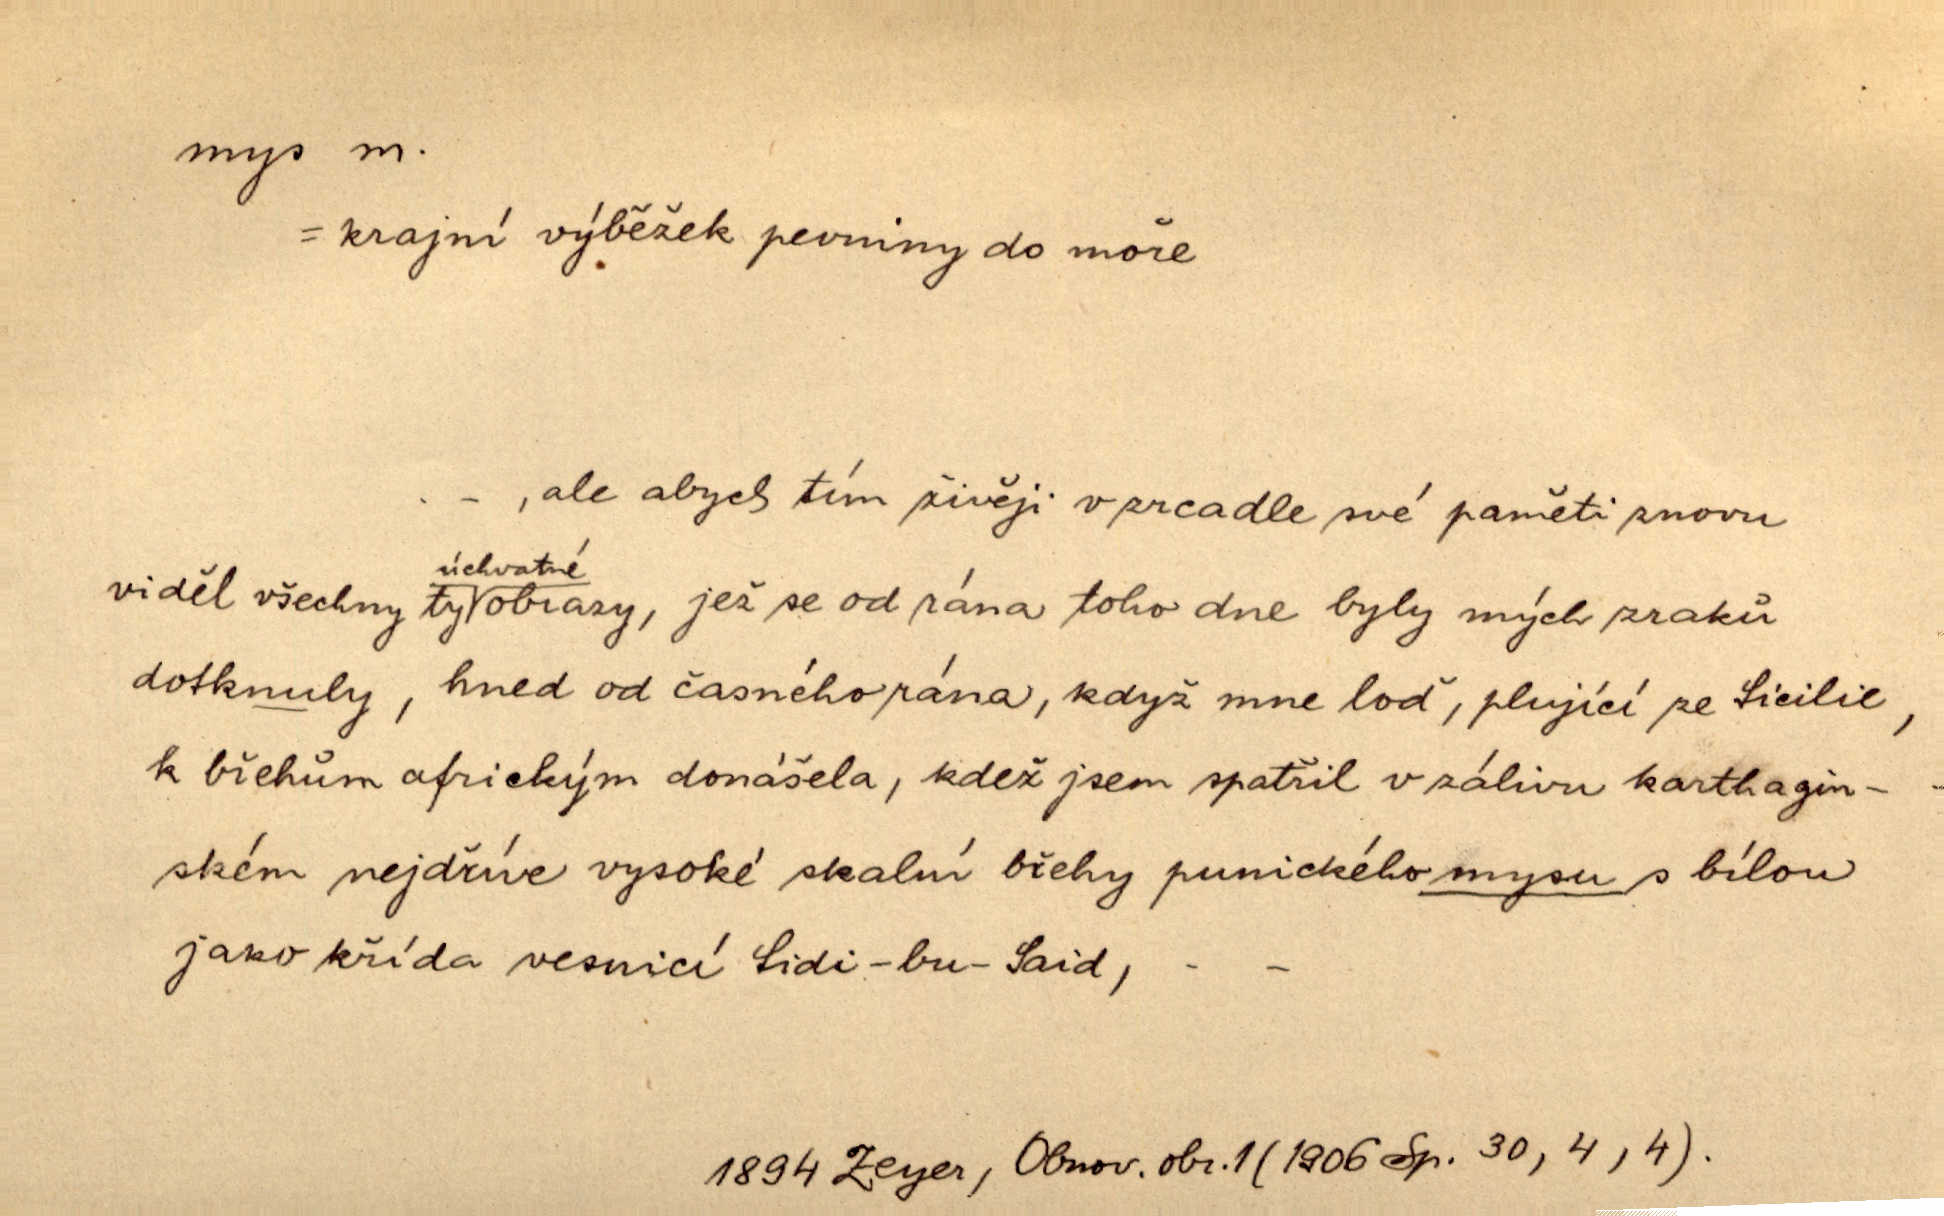 mys m.
= krajní výběžek pevniny do moře
. – , ale abych tím živěji v zrcadle své paměti znovu
úchvatné
viděl všechny ty obrazy, jež se od rána toho dne byly mých zraků
dotknuly, hned od časného rána, když mne loď, plující ze Sicilie,
k břehům africkým donášela, kdež jsem spatřil v zálivu karthagin-
ském nejdříve vysoké skalní břehy punického mysu s bílou
jako křída vesnicí Sidi-bu-Said, - –
1894 Zeyer, Obnov. obr. 1 (1906 Sp. 30, 4, 4).